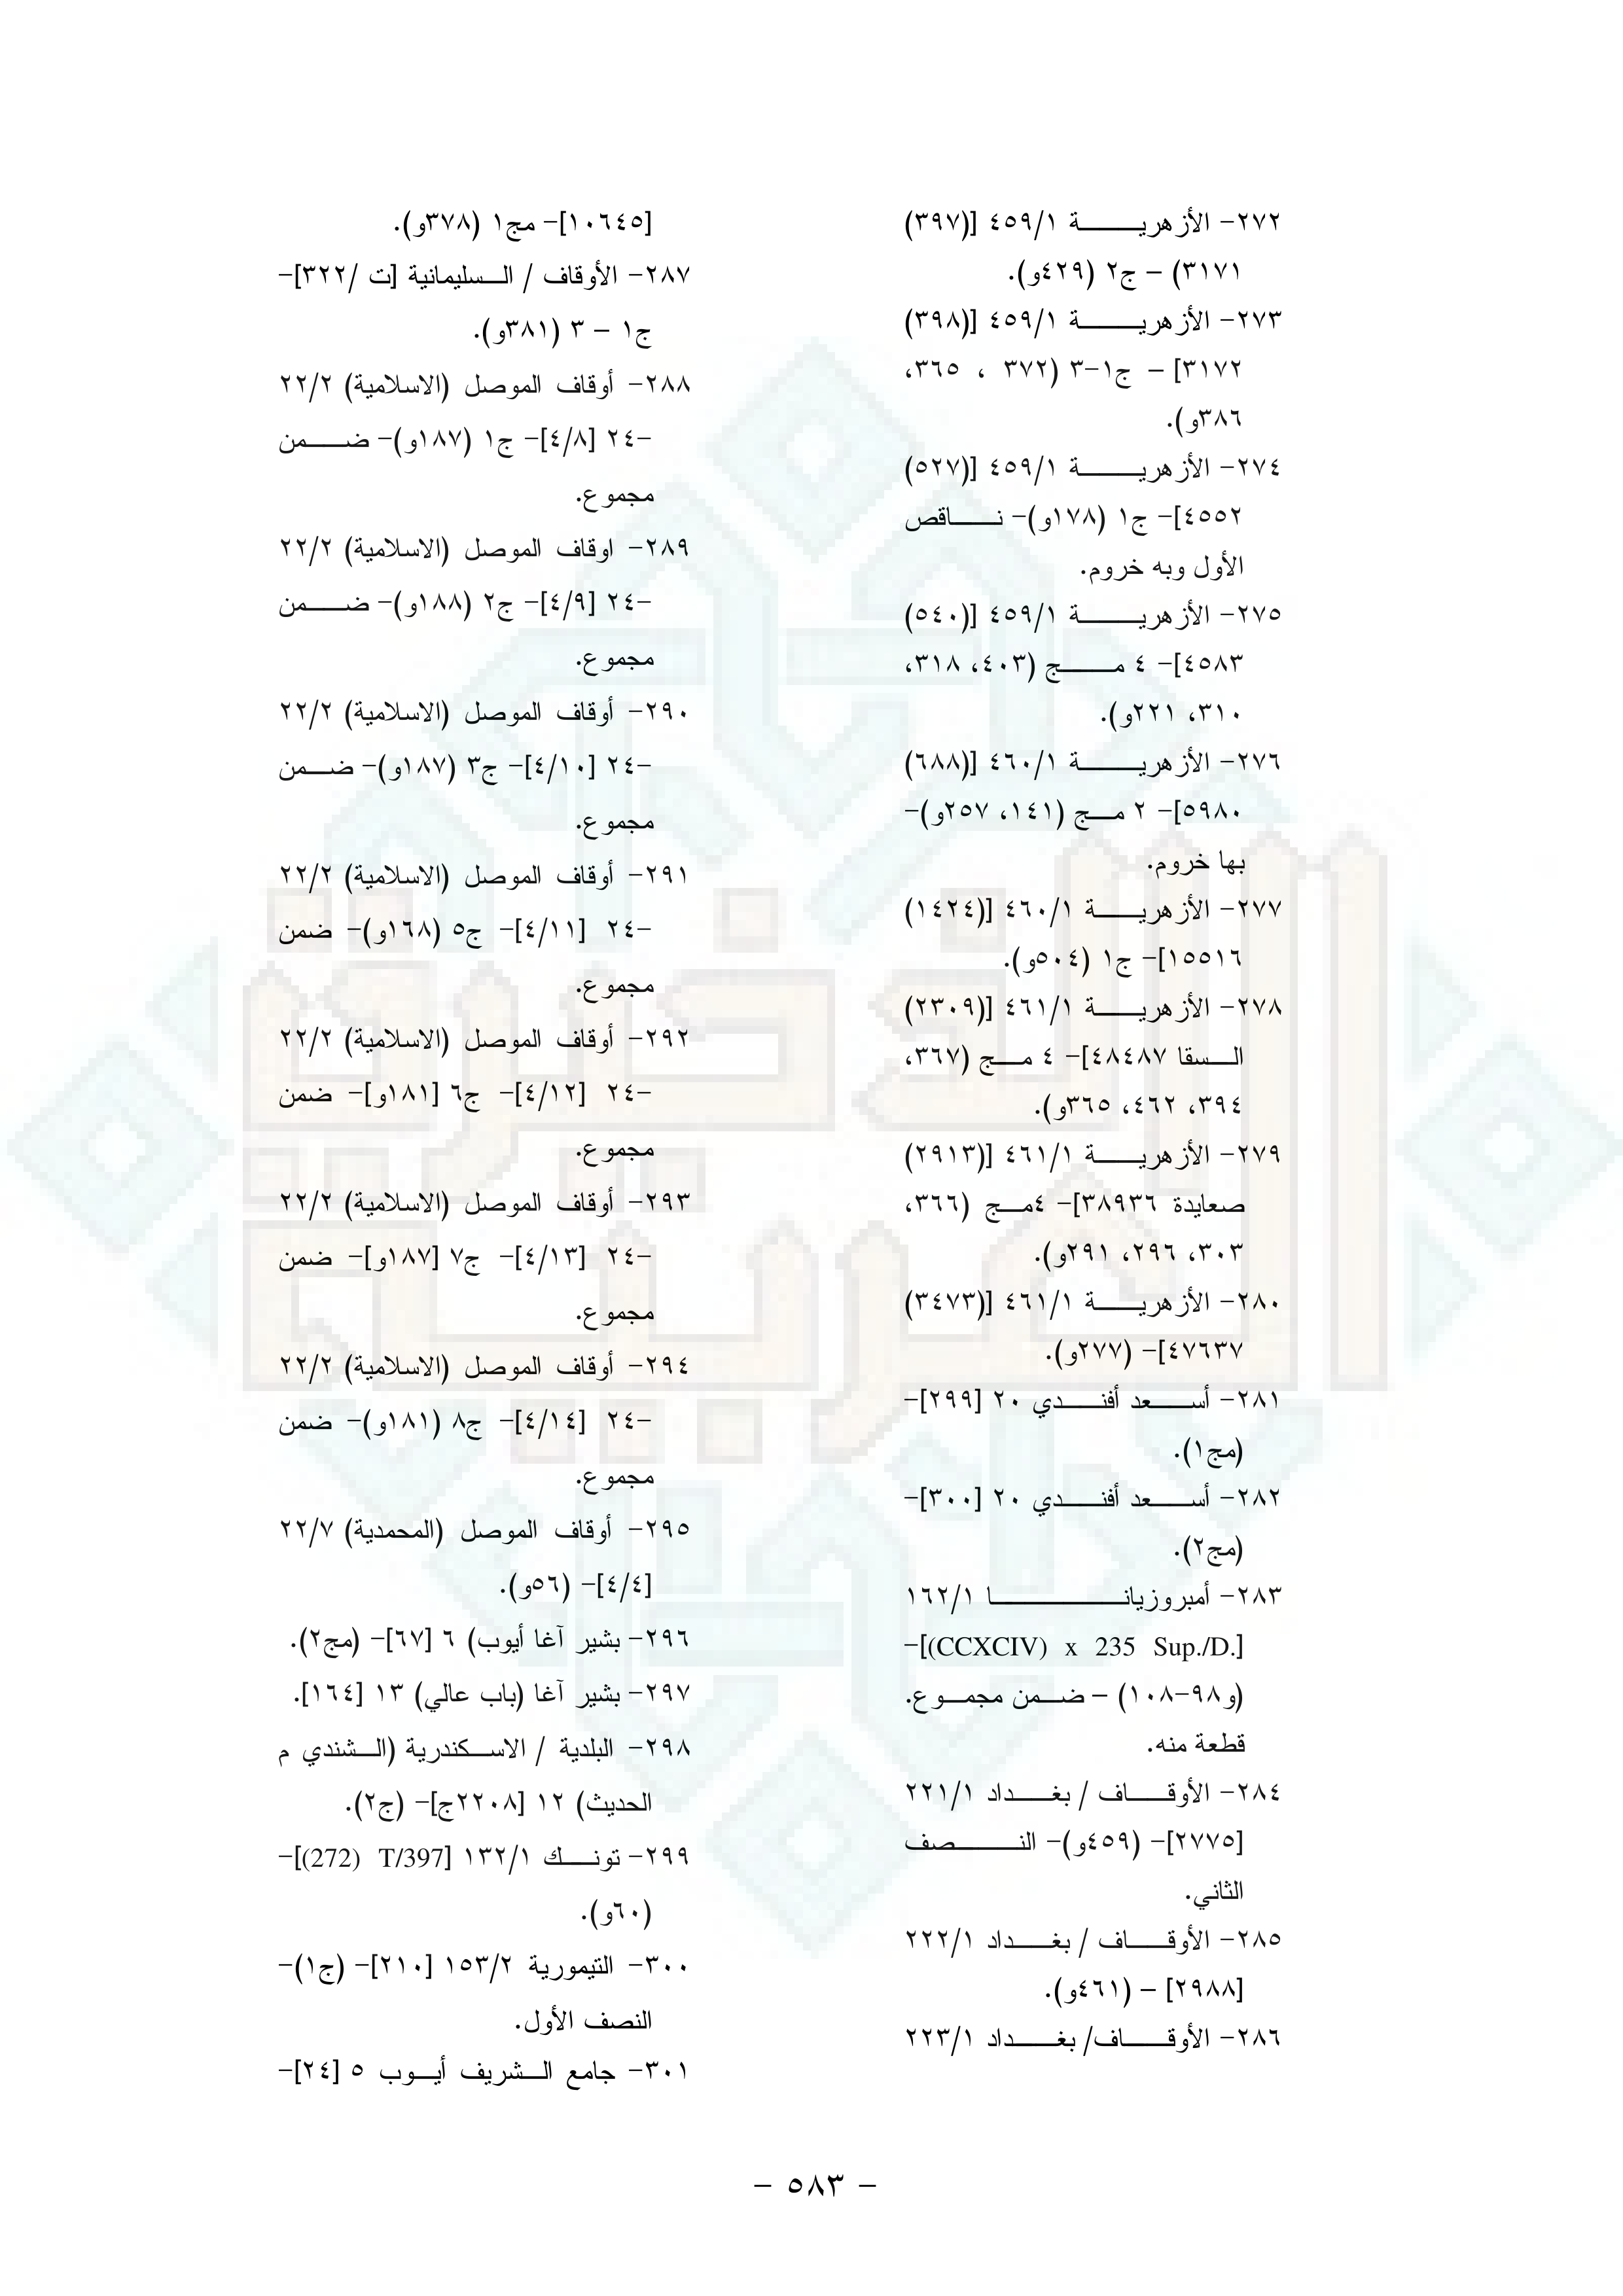 ٢٧٢- الأزهرية ٤٥٩/١ [(٣٩٧)
٣١٧١) – ج٢ (٤٢٩و).
٢٧٣- الأزهرية ٤٥٩/١ [(٣٩٨)
٣١٧٢] – ج١-٣ (٣٧٢ ، ٣٦٥،
٣٨٦و).
٢٧٤- الأزهرية ٤٥٩/١ [(٥٢٧)
٤٥٥٢]- ج١ (١٧٨و)- ناقص
الأول وبه خروم.
٢٧٥- الأزهرية ٤٥٩/١ [(٥٤٠)
٤٥٨٣]- ٤ مج (٤٠٣، ٣١٨،
٣١٠، ٢٢١و).
٢٧٦- الأزهرية ٤٦٠/١ [(٦٨٨)
٥٩٨٠]- ٢ مج (١٤١، ٢٥٧و)-
بها خروم.
٢٧٧- الأزهرية ٤٦٠/١ [(١٤٢٤)
١٥٥١٦]- ج١ (٥٠٤و).
٢٧٨- الأزهرية ٤٦١/١ [(٢٣٠٩)
السقا ٤٨٤٨٧]- ٤ مج (٣٦٧،
٣٩٤، ٤٦٢، ٣٦٥و).
٢٧٩- الأزهرية ٤٦١/١ [(٢٩١٣)
صعايدة ٣٨٩٣٦]- ٤مج (٣٦٦،
٣٠٣، ٢٩٦، ٢٩١و).
٢٨٠- الأزهرية ٤٦١/١ [(٣٤٧٣)
٤٧٦٣٧]- (٢٧٧و).
٢٨١- أسعد أفندي ٢٠ [٢٩٩]-
(مج١).
٢٨٢- أسعد أفندي ٢٠ [٣٠٠]-
(مج٢).
٢٨٣- أمبروزيانا ١٦٢/١
[(CCXCIV) x 235 Sup./D.]-
(و٩٨-١٠٨) – ضمن مجموع.
قطعة منه.
٢٨٤- الأوقاف / بغداد ٢٢١/١
[٢٧٧٥]- (٤٥٩و)- النصف
الثاني.
٢٨٥- الأوقاف / بغداد ٢٢٢/١
[٢٩٨٨] – (٤٦١و).
٢٨٦- الأوقاف/ بغداد ٢٢٣/١
[١٠٦٤٥]- مج١ (٣٧٨و).
٢٨٧- الأوقاف / السليمانية [ت /٣٢٢]-
ج١ – ٣ (٣٨١و).
٢٨٨- أوقاف الموصل (الاسلامية) ٢٢/٢
-٢٤ [٤/٨]- ج١ (١٨٧و)- ضمن
مجموع.
٢٨٩- اوقاف الموصل (الاسلامية) ٢٢/٢
-٢٤ [٤/٩]- ج٢ (١٨٨و)- ضمن
مجموع.
٢٩٠- أوقاف الموصل (الاسلامية) ٢٢/٢
-٢٤ [٤/١٠]- ج٣ (١٨٧و)- ضمن
مجموع.
٢٩١- أوقاف الموصل (الاسلامية) ٢٢/٢
-٢٤ [٤/١١]- ج٥ (١٦٨و)- ضمن
مجموع.
٢٩٢- أوقاف الموصل (الاسلامية) ٢٢/٢
-٢٤ [٤/١٢]- ج٦ [١٨١و]- ضمن
مجموع.
٢٩٣- أوقاف الموصل (الاسلامية) ٢٢/٢
-٢٤ [٤/١٣]- ج٧ [١٨٧و]- ضمن
مجموع.
٢٩٤- أوقاف الموصل (الاسلامية) ٢٢/٢
-٢٤ [٤/١٤]- ج٨ (١٨١و)- ضمن
مجموع.
٢٩٥- أوقاف الموصل (المحمدية) ٢٢/٧
[٤/٤]- (٥٦و).
٢٩٦- بشير آغا أيوب) ٦ [٦٧]- (مج٢).
٢٩٧- بشير آغا (باب عالي) ١٣ [١٦٤].
٢٩٨- البلدية / الاسكندرية (الشندي م
الحديث) ١٢ [٢٢٠٨ج]- (ج٢).
٢٩٩- تونك ١٣٢/١ [T/397 (272)]-
(٦٠و).
٣٠٠- التيمورية ١٥٣/٢ [٢١٠]- (ج١)-
النصف الأول.
٣٠١- جامع الشريف أيوب ٥ [٢٤]-
- ٥٨٣ -